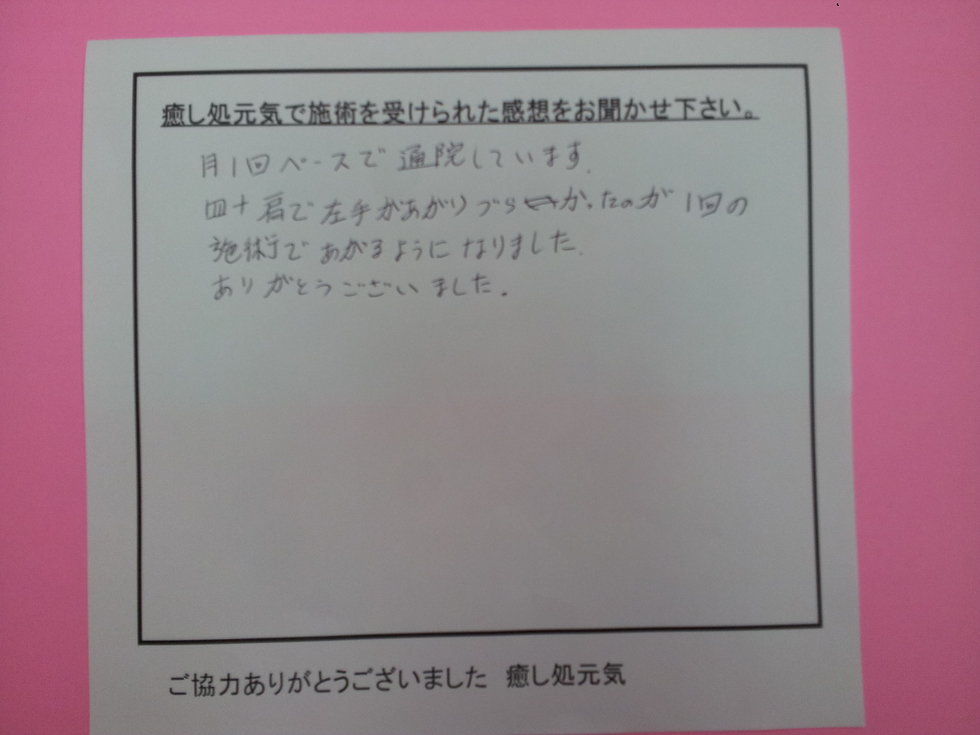 癒し処元気で施術を受けられた感想をお聞かせ下さい。
月1回ペースで通院しています.
四十肩で左手があがりづらかったのが1回の
施術であがるようになりました.
ありがとうございました.
ご協力ありがとうございました 癒し処元気